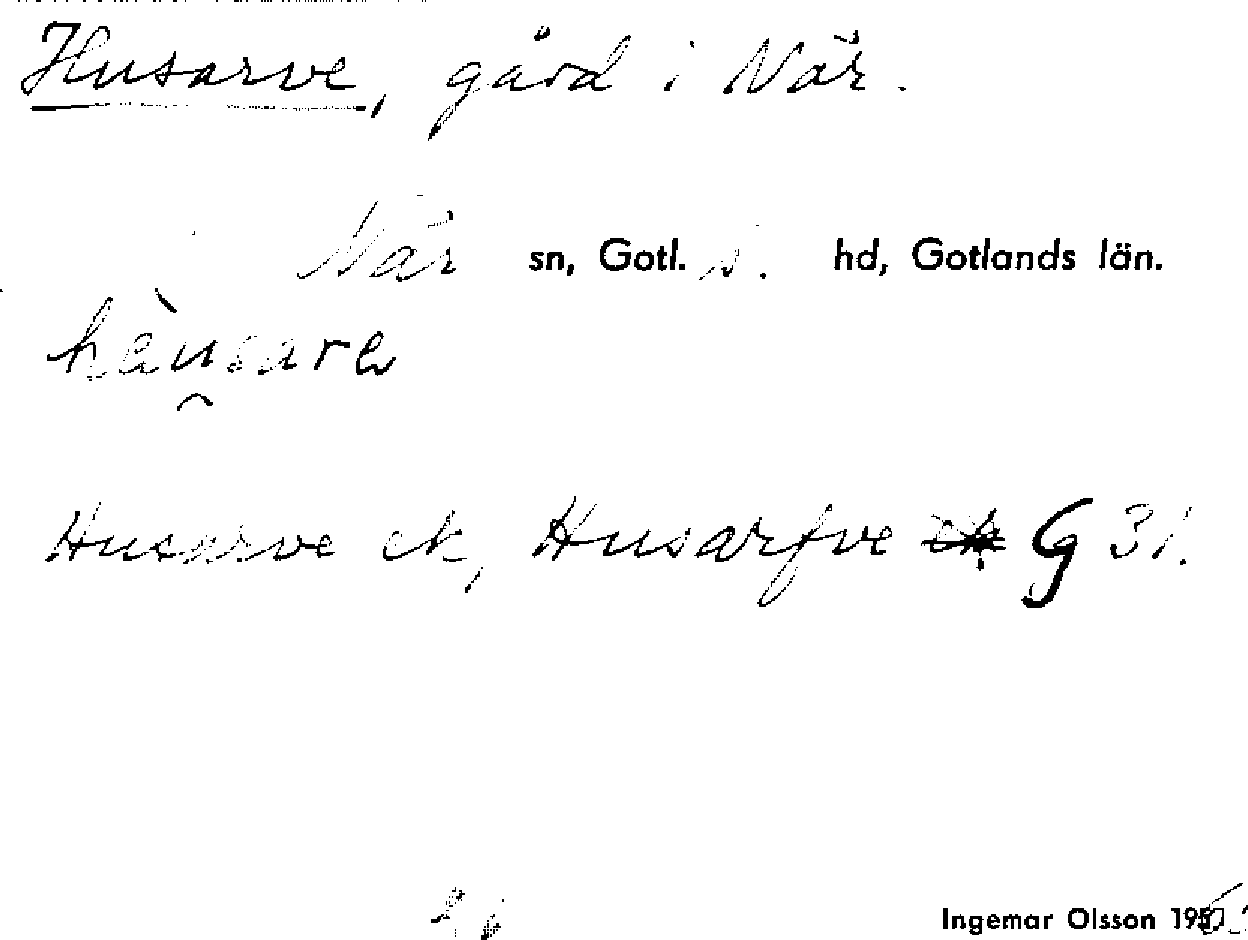 Husarve, gård i När.
När sn, Gotl. s. hd, Gotlands län.
Husarve ek, Husarfve G 31.
Ingemar Olsson